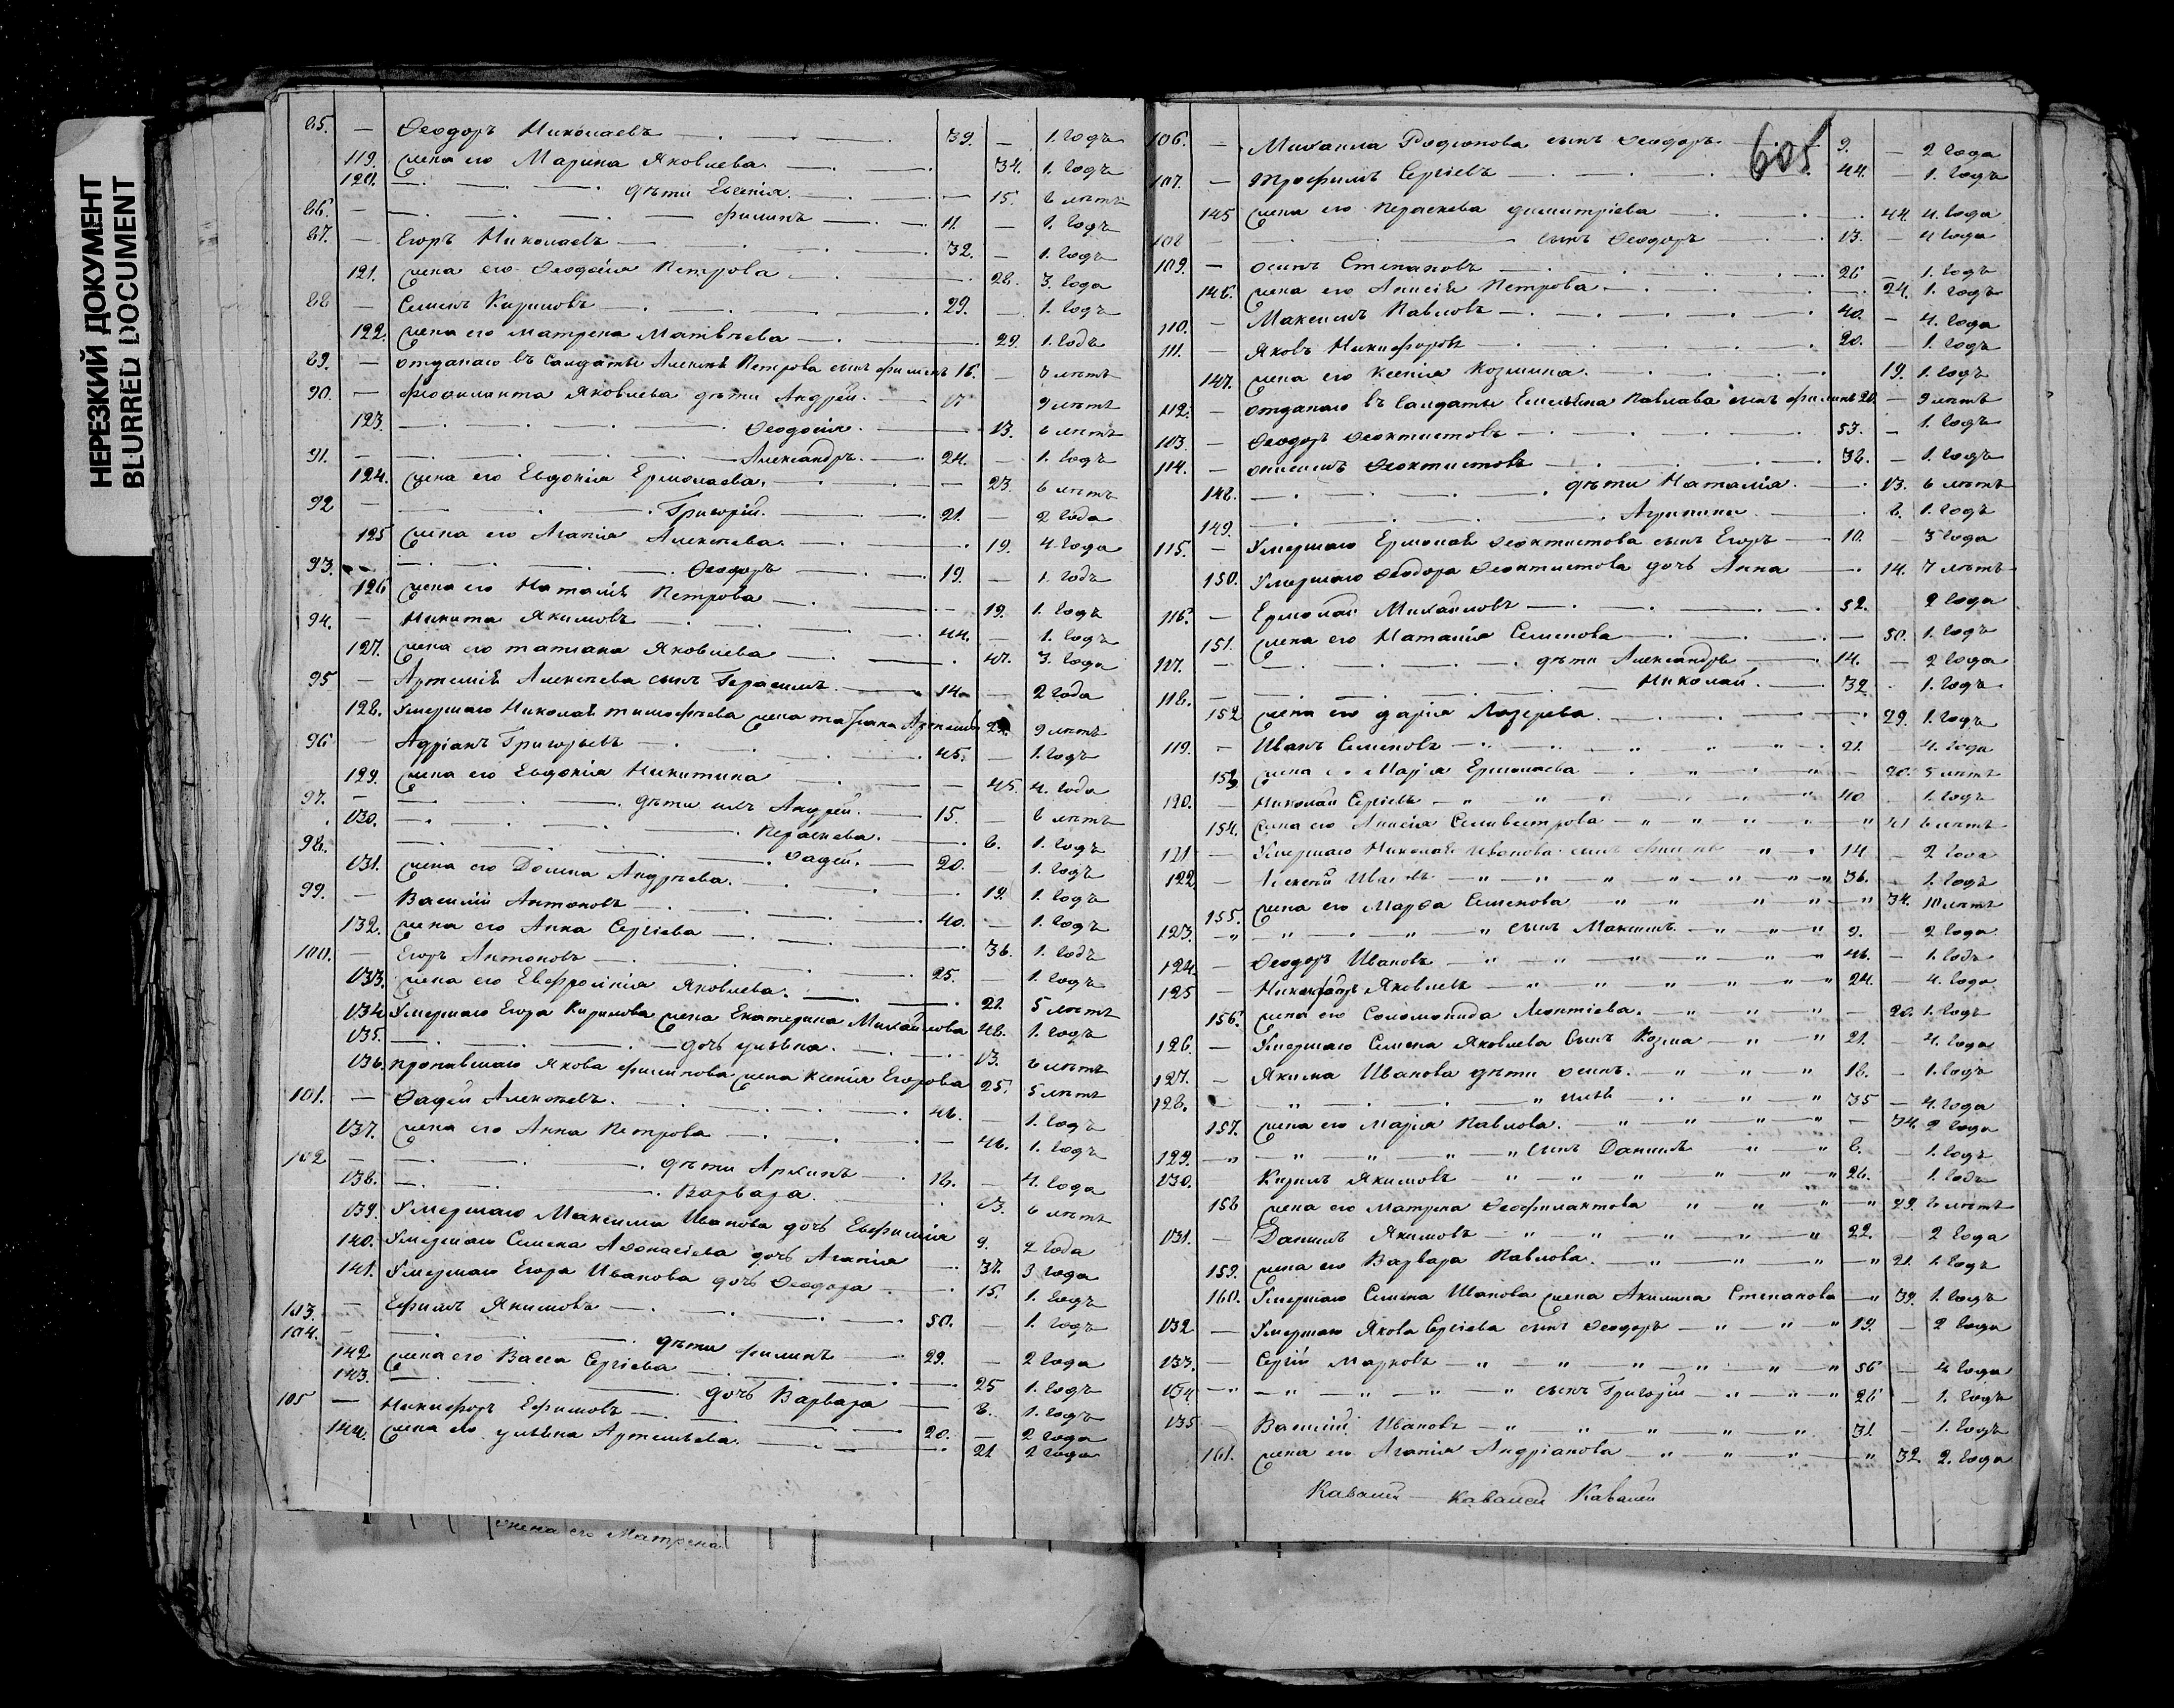 НЕРЕЗКИЙ ДОКУМЕНТ
BLURRED DOCUMENT
85. — Ѳеодоръ Николаевъ — 39. — 1. годъ
119. жена его Марина Яковлева — 34. 1. годъ
120. — дѣти Евгенія — 15. 6 лѣтъ
86. — Филипъ — 11. — 1. годъ
87. — Егоръ Николаевъ — 32. — 1. годъ
121. жена его Ѳеодосія Петрова — 28. 3. года
88 — Семенъ Кириловъ — 29. — 1. годъ
122. жена его Матрена Матвѣева — 29. 1. годъ
89. — отданаго въ Салдаты Алексѣя Петрова сынъ Филипъ 16. —
90. — Ѳеофилакта Яковлева дѣти Андрей — 17 9 лѣтъ
123. — Ѳеодосія — 13. 6 лѣтъ
91. — Александръ — 24. — 1. годъ
124. жена его Евдокія Ермолаева — 23. 6 лѣтъ
92 — Григорій — 21. — 2 года
125 жена его Агапія Алексѣева — 19. 4. года
93. — Ѳеодоръ — 19. — 1. годъ
126 жена его Наталія Петрова — 19. 1. годъ
94. — Никита Якимовъ — 44. — 1. годъ
127. жена его татіана Яковлева — 47. 3. года
95 — Артемія Алексѣева сынъ Герасимъ — 14 — 2 года
128. Умершаго Николая тимофѣева жена татіана 9 лѣтъ
96 — Адріанъ Григорьевъ — 45. — 1. годъ
129. жена его Евдокія Никитина — 45. 4. года
97. — дѣти ихъ Андрей — 15. — 6 лѣтъ
130. — Пераскева — 8. 1. годъ
98. — Ѳадей — 20. — 1. годъ
131. жена его Домна Андрѣева — 19. 1. годъ
99. — Василій Антоновъ — 40. — 1. годъ
132. жена его Анна Сергіева — 36. 1. годъ
100. — Егоръ Антоновъ — 25. — 1. годъ
133. жена его Евфросинія Яковлева — 21. 5 лѣтъ
134 Умершаго Егора Кирилова жена Екатерина Михайлова 48. 1. годъ
135. — дочь ульяна — 13. 6 лѣтъ
136. пропавшаго Якова филипова жена Ксенія Егорова 25. 5 лѣтъ
101. — Ѳадей Алексѣевъ — 46. — 1. годъ
137. жена его Анна Петрова — 46. 1. годъ
102 — дѣти Архипъ — 18. — 4. года
138. — Варвара — 13. 6 лѣтъ
139. Умершаго Максима Иванова дочь Евфимія 9. 2 года
140. Умершаго Семена Аѳонасіева дочь Агапія — 37. 3 года
141. Умершаго Егора Иванова дочь Ѳеодора — 15. 1. годъ
103. — Ефимъ Якимовъ — 50. — 1. годъ
104. — дѣти филипъ — 29. — 2 года
142 жена его Васса Сергіева — 25 1. годъ
143. — дочь Варвара — 8. 1. годъ
105 — Никифоръ Ефимовъ — 20. — 2 года
144. жена его ульяна Артемьева — 21 2 года
жена его Матрена
605
106. — Михаила Родіонова сынъ Ѳеодоръ — 9. — 2 года
107. — Трофимъ Сергіевъ — 44. — 1. годъ
145 жена его Пераскева димитріева — 44 4. года
108 — сынъ Ѳеодоръ — 13. — 4 года
109. — осипъ Степановъ — 26 — 1. годъ
146. жена его Анисія Петрова — 24. 1. годъ
110. — Максимъ Павловъ — 40. — 4. года
111. — Яковъ Никифоровъ — 20. — 1. годъ
147. жена его Ксенія Козмина — 19. 1. годъ
112. — отданаго въ Салдаты Емельяна Павлова сынъ филипъ 20. — 9 лѣтъ
113 — Ѳеодоръ Ѳеоктистовъ — 53. — 1. годъ
114. — онисимъ Ѳеоктистовъ — 38. — 1. годъ
148. — дѣти Наталія — 13. 6 лѣтъ
149. — Агрипина — 8. 1. годъ
115. — Умершаго Ермолая Ѳеоктистова сынъ Егоръ — 10. — 3 года
150. Умершаго Ѳеодора Ѳеоктистова дочь Анна — 14. 7 лѣтъ
116. — Ермолай Михайловъ — 52. 2 года
151. жена его Наталія Семенова — 50. 1. годъ
117. — дѣти Александръ — 14. — 2 года
118. — Николай — 32. 1. годъ
152 жена его дарія Лазерева — 29. 1. годъ
119. — Иванъ Семеновъ — 21. 4. года
153 жена его Марія Ермолаева — 20. 5 лѣтъ
120. — Николай Сергіевъ — 40 1. годъ
154. жена его Анисія Селивестрова — 41 6 лѣтъ
121 — Умершаго Николая Иванова сынъ филипъ — 14 — 2 года
122 — Алексѣй Ивановъ — 36. — 1. годъ
155. жена его Марѳа Семенова — 34. 10 лѣтъ
123. — сынъ Максимъ — 9. — 2 года
124. — Ѳеодоръ Ивановъ — 46. — 1. годъ
125 — Никифоръ Яковлевъ — 24. — 4. года
156. жена его Соломонида Леонтіева — 20. 1. годъ
126. — Умершаго Семена Яковлева Сынъ Козма — 21. — 4. года
127. — Якима Иванова дѣти осипъ — 18. — 1. годъ
128. — 35 — 4. года
157. жена его Марія Павлова — 34. 2 года
129. — сынъ Даниилъ — 8. — 1. годъ
130. Кирилъ Якимовъ — 26. — 1. годъ
158 жена его Матрена Ѳеофилактова — 29. 6 лѣтъ
131. — Даниилъ Якимовъ — 22. — 2 года
159. жена его Варвара Павлова — 21. 1. годъ
160. Умершаго Семена Иванова жена Акилина Степанова — 39. 1. годъ
132 — Умершаго Якова Сергіева сынъ Ѳеодоръ — 19. — 2 года
133. — Сергій Марковъ — 56 — 4 года
134 — сынъ Григорій — 26 — 1. годъ
135 — Василій Ивановъ — 31. — 1. годъ
161. жена его Агапія Андріанова — 32. 2. года